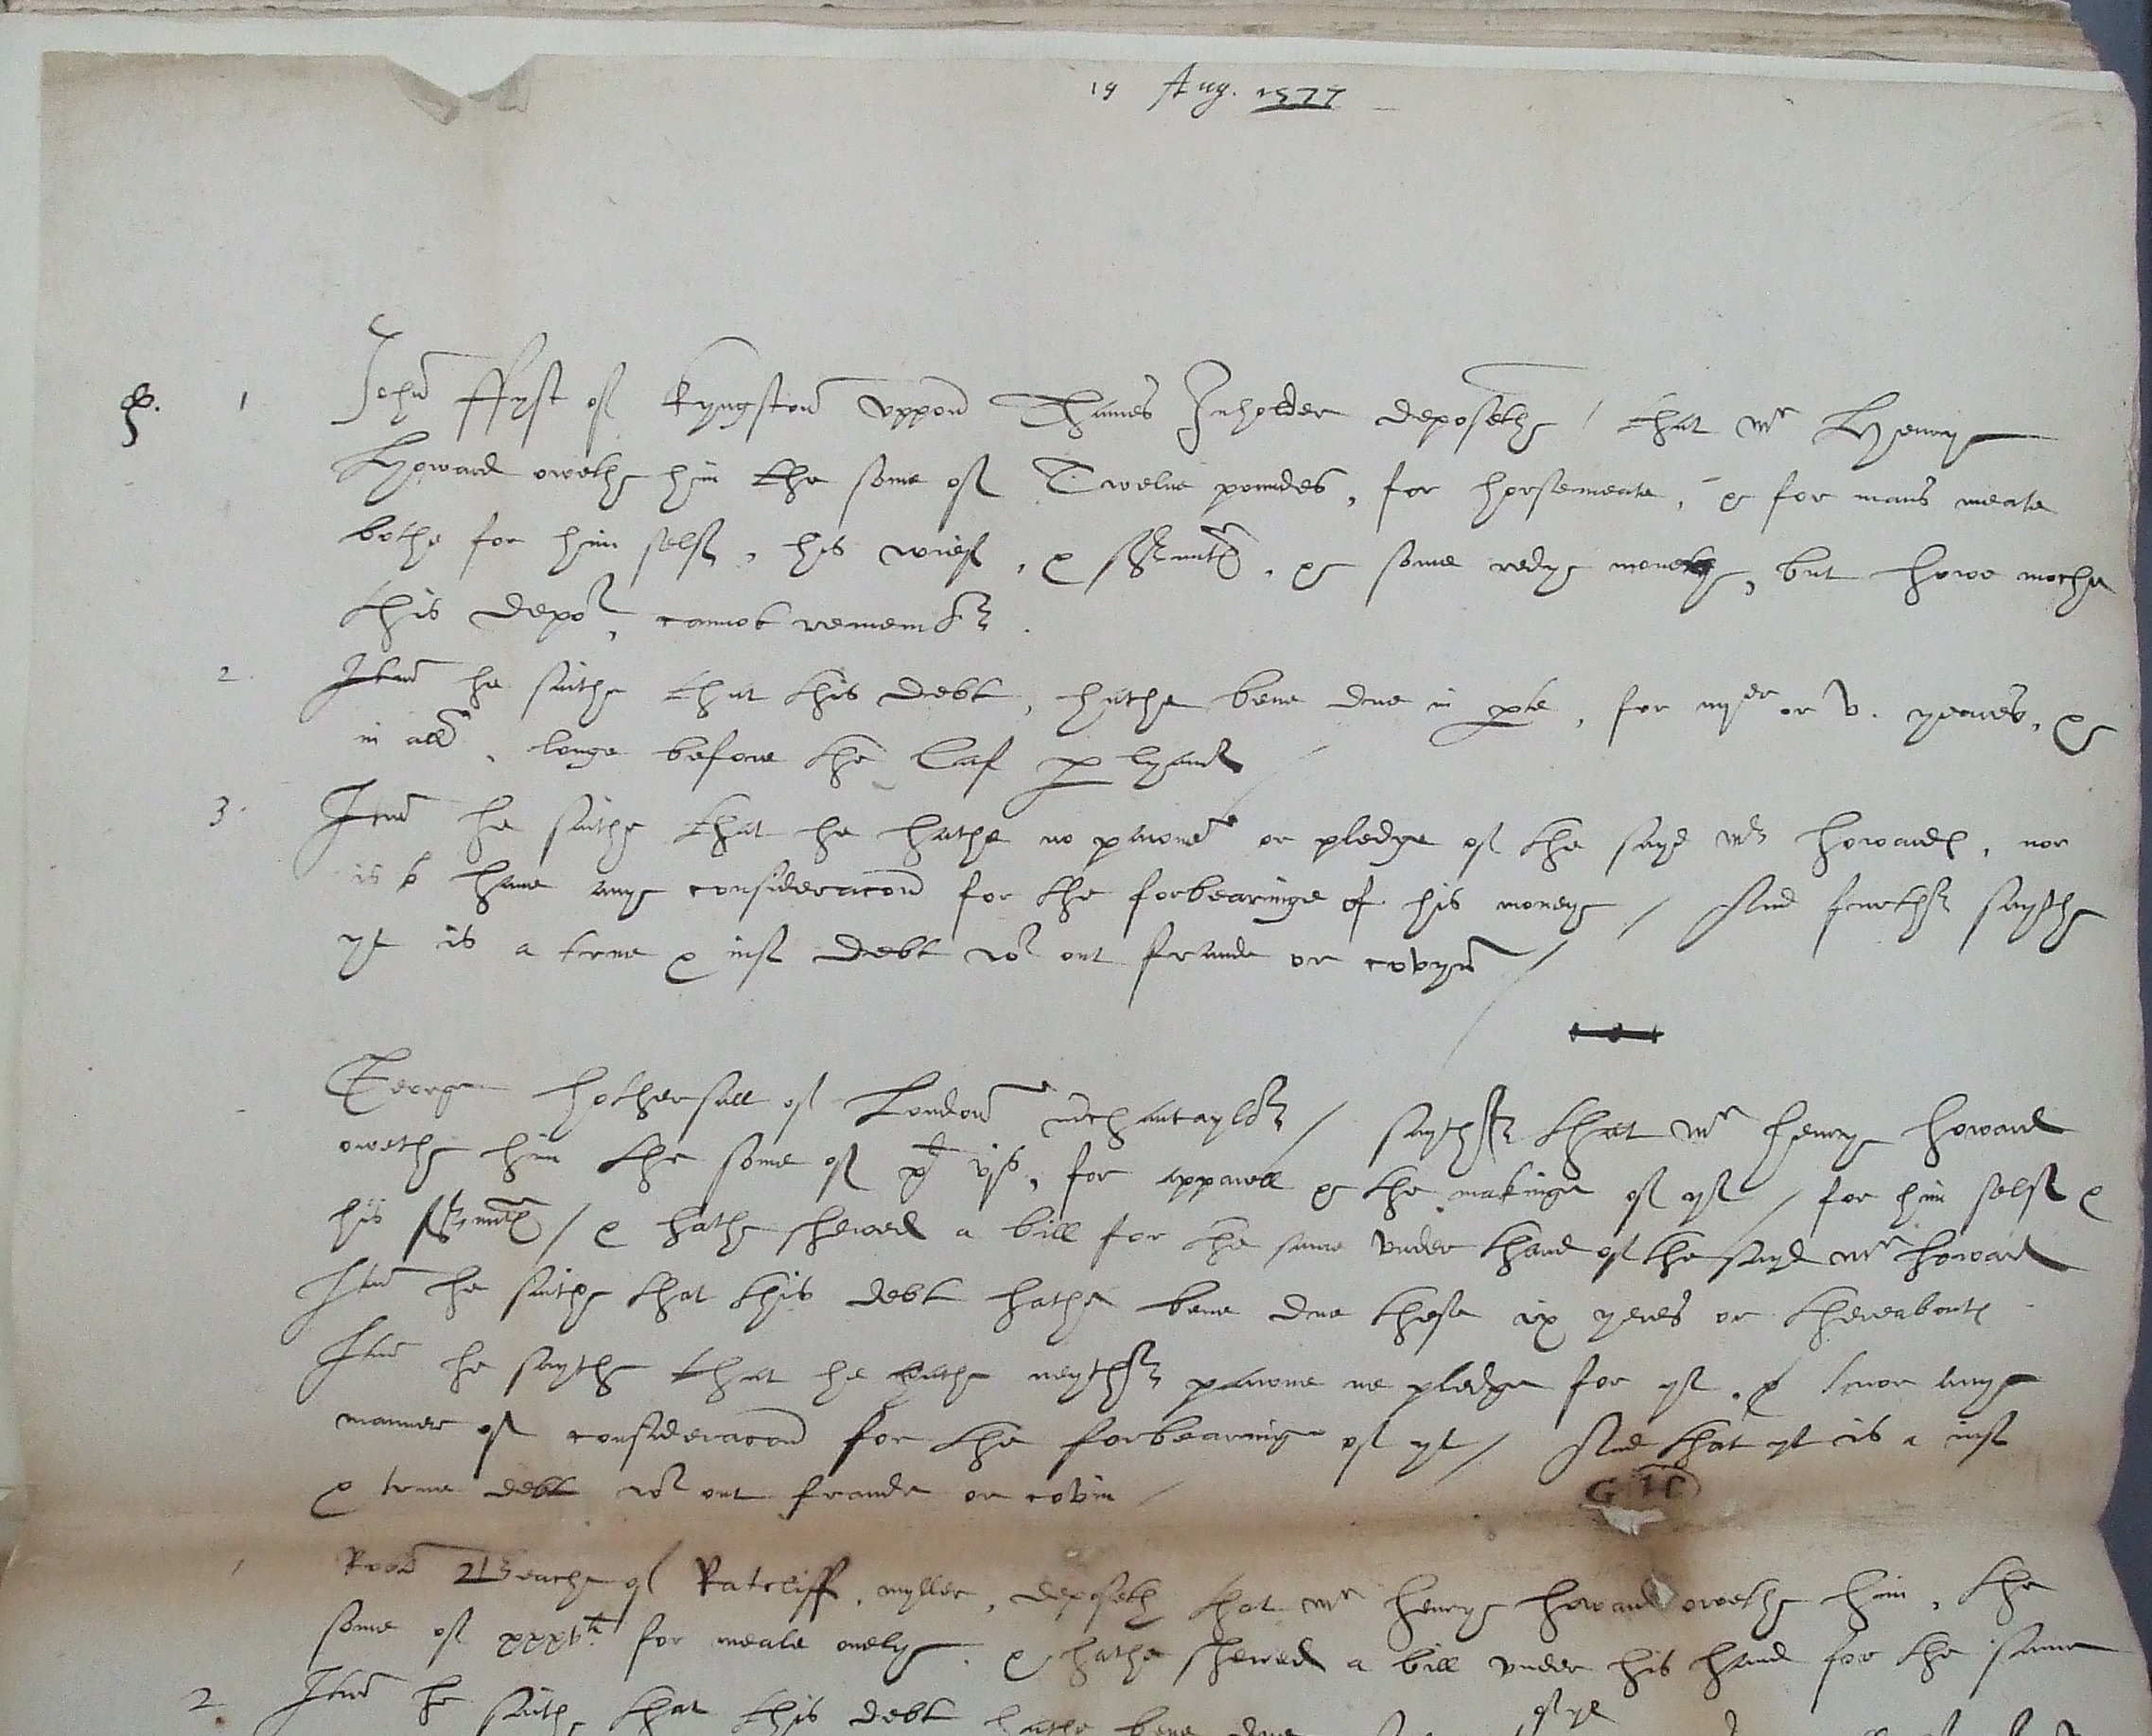 19 Aug. 1577
1 John ffyst of Kyngston uppon Thames Inholder deposethe / that mr Henrye
Howard owethe him the some of Twelve poundes, for horsemeate, & for mans meate
bothe for him self, his wief, & servntes, & some redye moneye, but howe moche
this depot, cannot remembr.
2. Itm he saithe that this debt, hathe bene due in pte, for iiijer or v. yeares, &
in all, longe before the last plyamt
3. Itm he saithe that he hathe no pawne or pledge of the sayd mr howard, nor
is to have anye consideracon for the forbearinge of his moneye / And further saythe
yt is a true & iust debt wt out fraude or covyn /
George hothersall of London mchantaylor / saythe that mr henrye howard
owethe him the some of vjs, for apparell & the makinge of yt / for him self &
his servntes / & hathe shewed a bill for the same under thand of the sayd mr howard
Itm he saithe that this debt hathe bene due these ix yeres or thereaboutes
Itm he saythe that he hathe neyther pawne ne pledge for yt, nor anye
manner of consideracon for the forbearinge of yt / And that yt is a iust
& true debt wt out fraude or covin /
1 of Ratcliff, myller, deposeth that mr henrye howard owethe him, the
some of xxxvli for meale onelye. & hathe shewed a bill under his hand for the same
2 Itm he saith that this debt hathe bene due
of yt